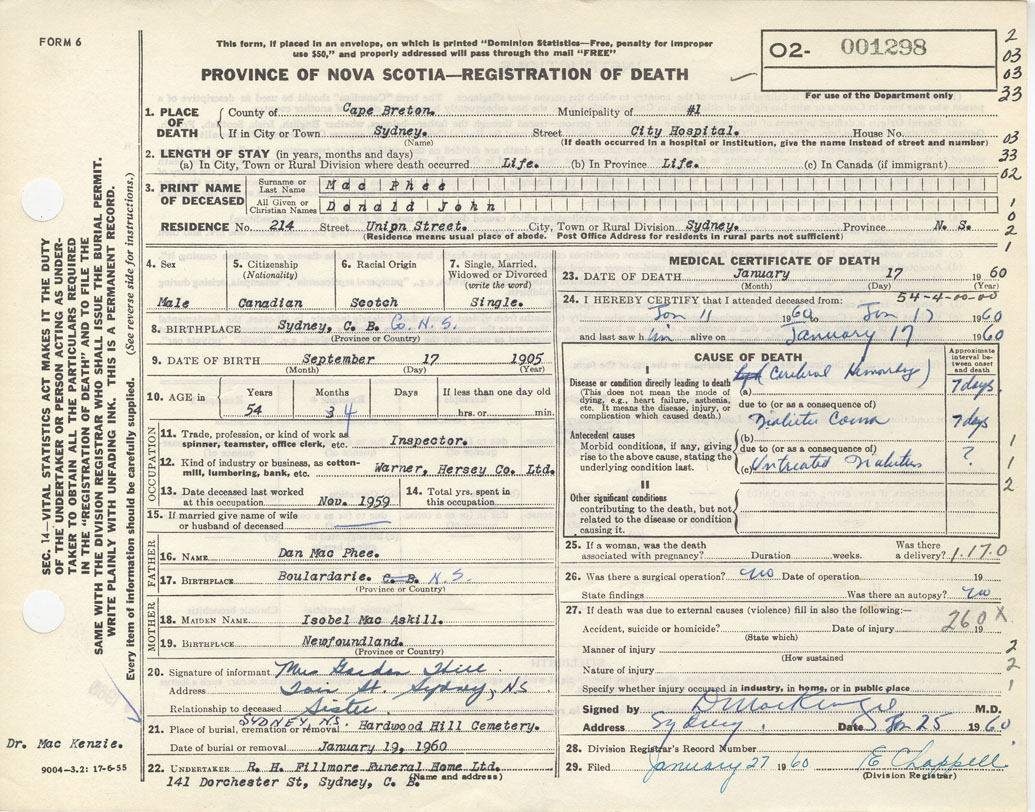 FORM 6
This form, if placed in an envelope, on which is printed "Dominion Statistics—Free, penalty for improper
use $50," and properly addressed will pass through the mail "FREE"
PROVINCE OF NOVA SCOTIA—REGISTRATION OF DEATH
O2- 001298
For use of the Department only
2
03
03
33
1. PLACE OF DEATH
County of Cape Breton. Municipality of #1
If in City or Town Sydney. Street City Hospital. House No.
(Name) (If death occurred in a hospital or institution, give the name instead of street and number)
03
33
02
2. LENGTH OF STAY (in years, months and days)
(a) In City, Town or Rural Division where death occurred Life. (b) In Province Life. (c) In Canada (if immigrant)
3. PRINT NAME OF DECEASED
Surname or Last Name Mac Phee
All Given or Christian Names Donald John
1
0
2
1
RESIDENCE No. 214 Street Unipn Street. City, Town or Rural Division Sydney. Province N. S.
(Residence means usual place of abode. Post Office Address for residents in rural parts not sufficient)
4. Sex Male
5. Citizenship (Nationality) Canadian
6. Racial Origin Scotch
7. Single, Married, Widowed or Divorced (write the word) Single.
8. BIRTHPLACE Sydney, C. B. N.S.
(Province or Country)
9. DATE OF BIRTH September 17 1905
(Month) (Day) (Year)
10. AGE in Years 54 Months 3 4 Days If less than one day old hrs. or min.
OCCUPATION
11. Trade, profession, or kind of work as spinner, teamster, office clerk, etc. Inspector.
12. Kind of industry or business, as cotton-mill, lumbering, bank, etc. Warner, Hersey Co. Ltd.
13. Date deceased last worked at this occupation Nov. 1959
14. Total yrs. spent in this occupation
15. If married give name of wife or husband of deceased
FATHER
16. NAME Dan Mac Phee.
17. BIRTHPLACE Boulardarie. C. B. N.S.
(Province or Country)
MOTHER
18. MAIDEN NAME Isobel Mac Askill.
19. BIRTHPLACE Newfoundland.
(Province or Country)
20. Signature of informant Mrs Gordon Hill
Address St. Sydney, NS
Relationship to deceased Sister
21. Place of burial, cremation or removal SYDNEY, N.S. Hardwood Hill Cemetery.
Date of burial or removal January 19, 1960
22. UNDERTAKER R. H. Fillmore Funeral Home Ltd.
(Name and address)
141 Dorchester St, Sydney, C. B.
MEDICAL CERTIFICATE OF DEATH
23. DATE OF DEATH January 17 1960
(Month) (Day) (Year)
54-4-00-00
24. I HEREBY CERTIFY that I attended deceased from:
Jan 11 1960 to Jan 17 1960
and last saw him alive on January 17 1960
CAUSE OF DEATH
Approximate interval between onset and death
I
Disease or condition directly leading to death
(This does not mean the mode of dying, e.g., heart failure, asthenia, etc. It means the disease, injury, or complication which caused death.)
(a) (Cerebral Hemorrhage) 7 days.
due to (or as a consequence of)
Antecedent causes
Morbid conditions, if any, giving rise to the above cause, stating the underlying condition last.
(b) Diabetic Coma 7 days
due to (or as a consequence of)
(c) Untreated Diabetes ?
1
1
2
II
Other significant conditions
contributing to the death, but not related to the disease or condition causing it.
25. If a woman, was the death associated with pregnancy? Duration weeks. Was there a delivery? 1.17.0
26. Was there a surgical operation? no Date of operation 19
State findings Was there an autopsy? no
27. If death was due to external causes (violence) fill in also the following:—
260 X
Accident, suicide or homicide? Date of injury 19
(State which)
Manner of injury 2
(How sustained)
Nature of injury 2
Specify whether injury occurred in industry, in home, or in public place 1
Signed by D MacKenzie M.D.
Address Sydney. Date Jan 25 1960
28. Division Registrar's Record Number
29. Filed January 27 1960 E Chappell.
(Division Registrar)
SEC. 14—VITAL STATISTICS ACT MAKES IT THE DUTY
OF THE UNDERTAKER OR PERSON ACTING AS UNDER-
TAKER TO OBTAIN ALL THE PARTICULARS REQUIRED
IN THE "REGISTRATION OF DEATH" AND TO FILE THE
SAME WITH THE DIVISION REGISTRAR WHO SHALL ISSUE THE BURIAL PERMIT.
WRITE PLAINLY WITH UNFADING INK. THIS IS A PERMANENT RECORD.
Every item of information should be carefully supplied. (See reverse side for instructions.)
Dr. Mac Kenzie.
9004-3.2: 17-6-55